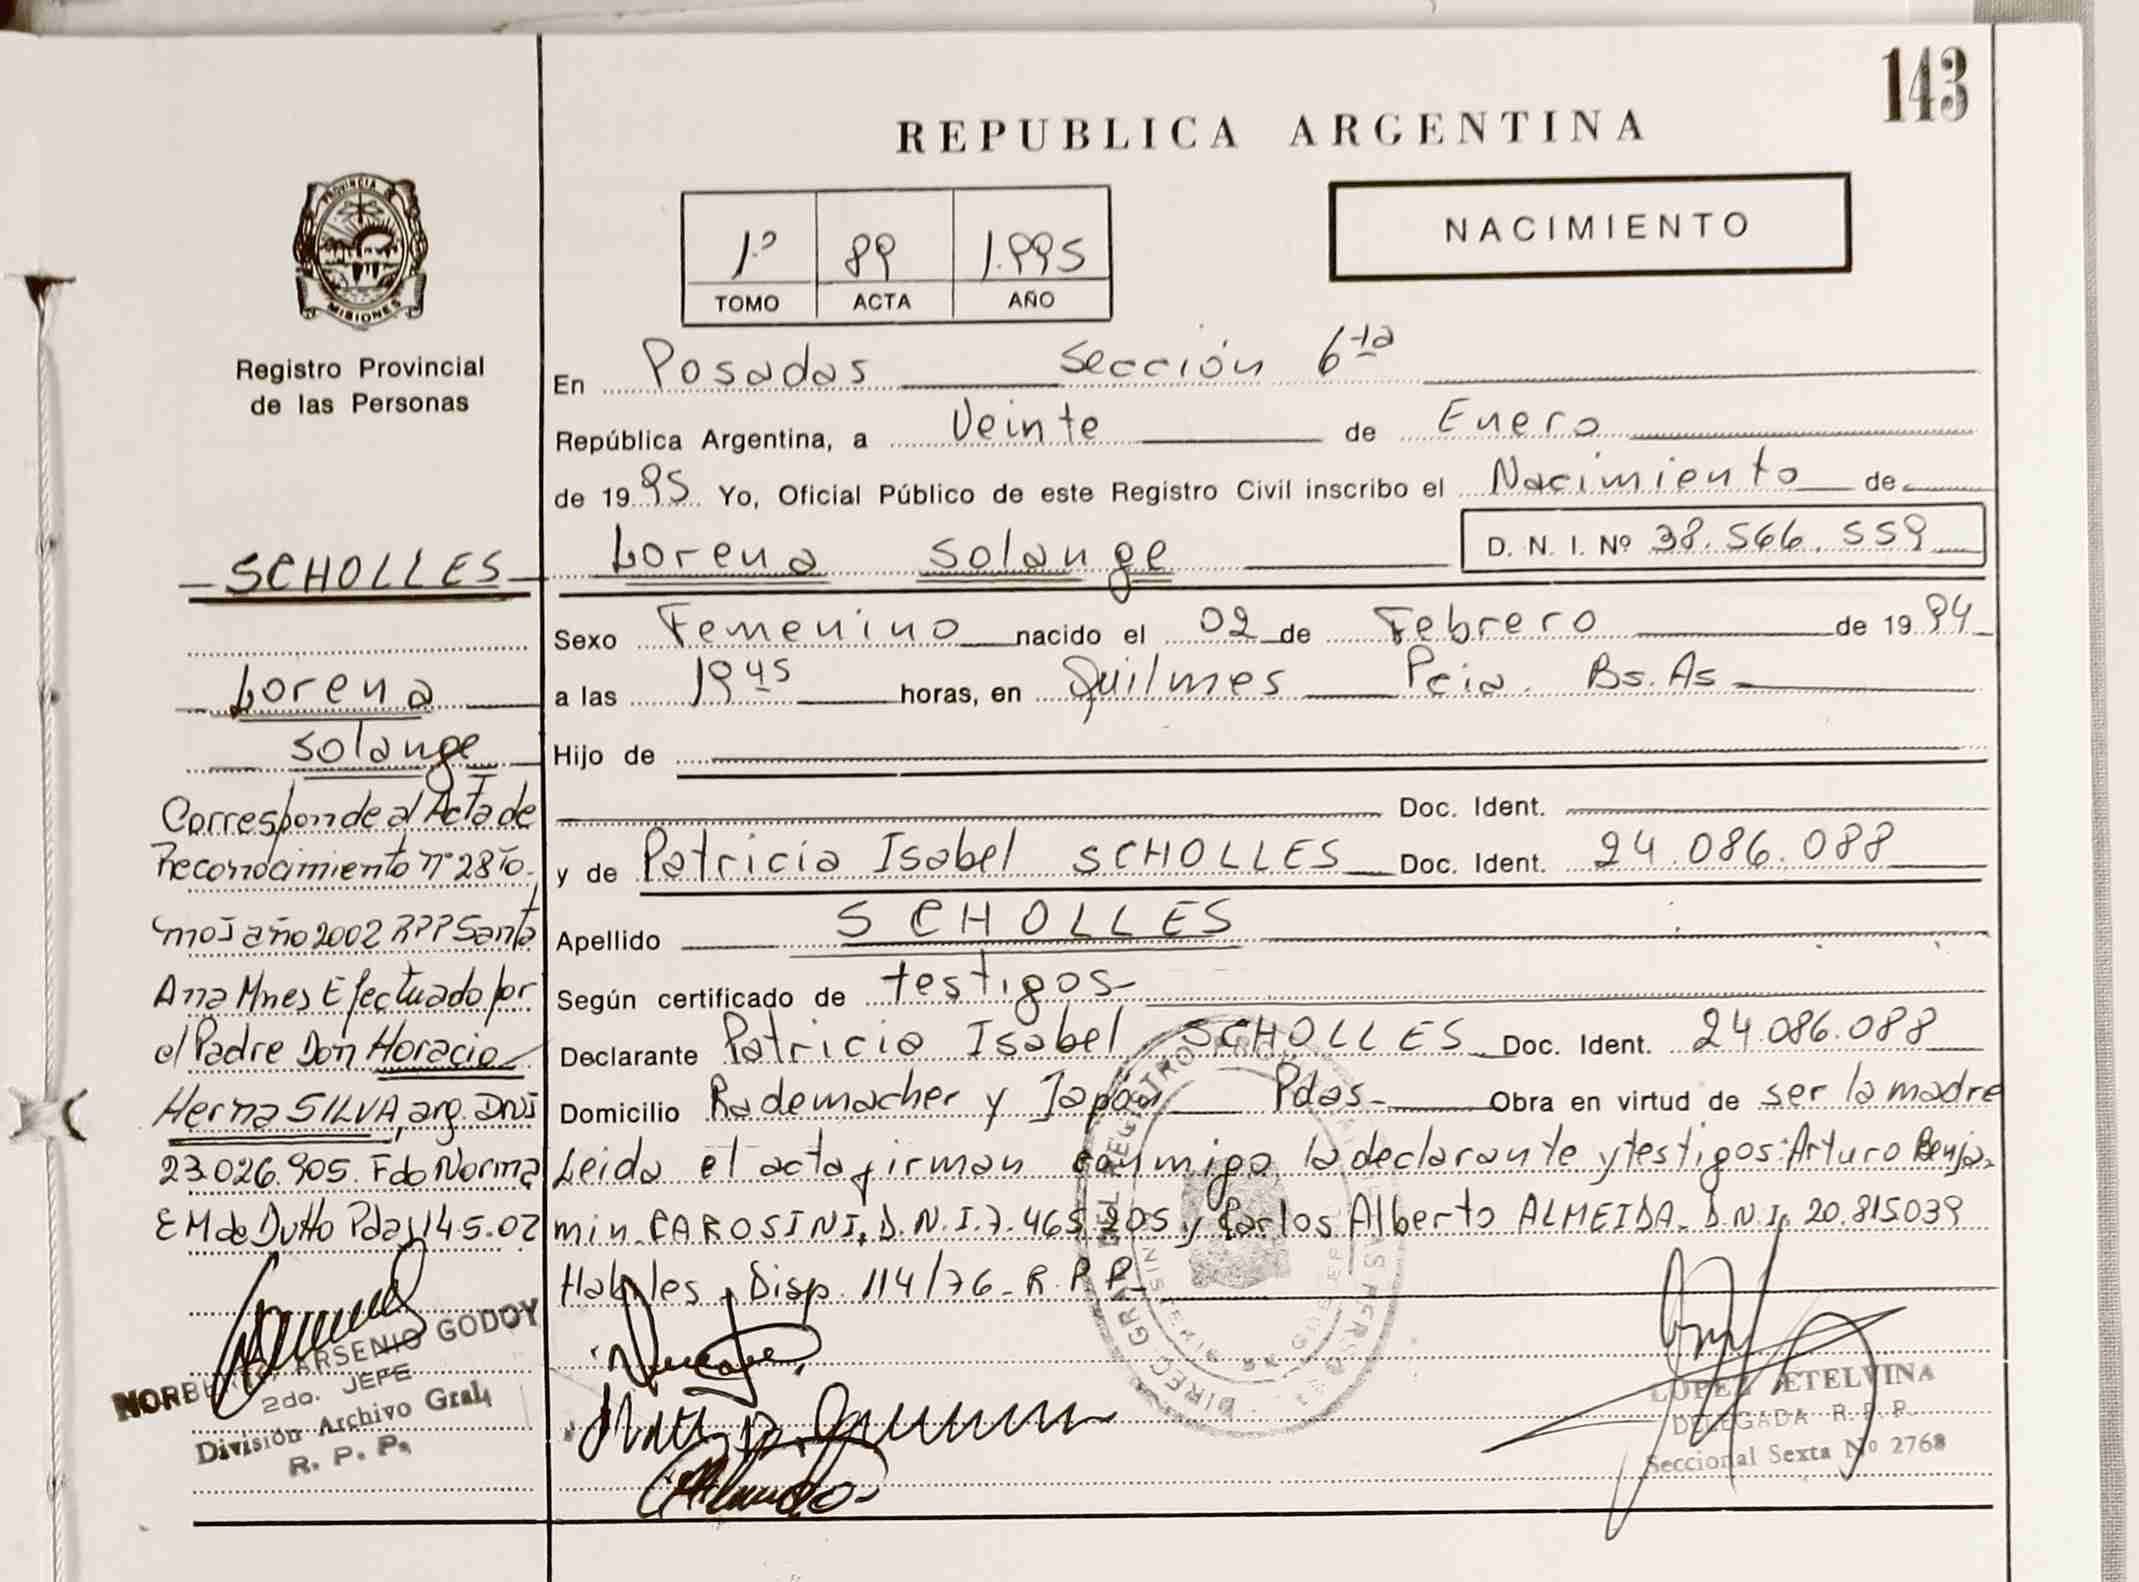 143
REPUBLICA ARGENTINA
NACIMIENTO
1º 89 1.995
TOMO ACTA AÑO
PROVINCIA DE
MISIONES
Registro Provincial
de las Personas
SCHOLLES
Lorena
Solange
Corresponde al Acta de
Reconocimiento nº 28 Tº
año 2002 RPP Santa
Ana Mnes Efectuado por
el Padre Don Horacio
SILVA, arg. DNI
23.026.905. Fdo Norma
E M de Dutto Pdas 14-5-02
NORBERTO ARSENIO GODOY
2do. JEFE
División Archivo Gral.
R. P. P.
En Posadas Sección 6ta
República Argentina, a Veinte de Enero
de 1995 Yo, Oficial Público de este Registro Civil inscribo el Nacimiento de
Lorena Solange D. N. I. Nº 38.566.559
Sexo Femenino nacido el 02 de Febrero de 1994
a las 19 45 horas, en Quilmes Pcia. Bs. As
Hijo de
Doc. Ident.
y de Patricia Isabel SCHOLLES Doc. Ident. 24.086.088
Apellido SCHOLLES
Según certificado de testigos
Declarante Patricia Isabel SCHOLLES Doc. Ident. 24.086.088
Domicilio Rademacher y Japón Pdas- Obra en virtud de ser la madre
Leida el acta firman conmigo la declarante y testigos: Arturo Benja-
min CAROSINI, D.N.I. 7.465.205 y Carlos Alberto ALMEIDA- D.N.I. 20.815.039
Habiles, Disp. 114/76- R.P.P.
LOPEZ ETELVINA
DELEGADA R. P. P.
Seccional Sexta Nº 2768